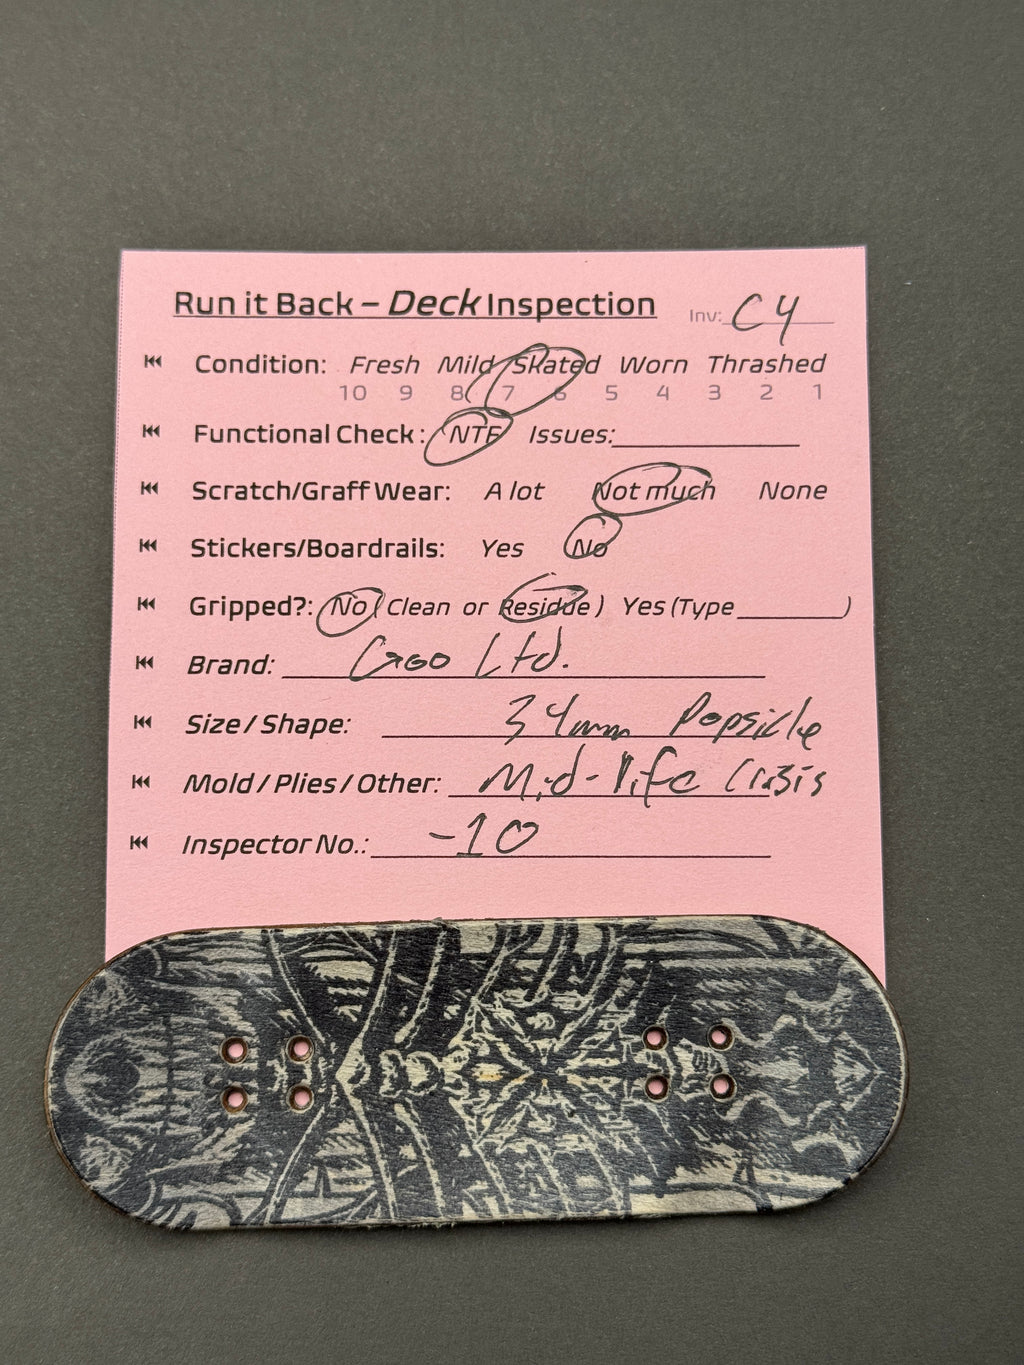 Run it Back – Deck Inspection Inv: C4
Condition: Fresh Mild Skated Worn Thrashed
10 9 8 7 6 5 4 3 2 1
Functional Check: NTF Issues:
Scratch/Graff Wear: A lot Not much None
Stickers/Boardrails: Yes No
Gripped?: No (Clean or Residue) Yes (Type )
Brand: Goo Ltd.
Size / Shape: 34mm Popsicle
Mold / Plies / Other: Mid-life Crisis
Inspector No.: -10